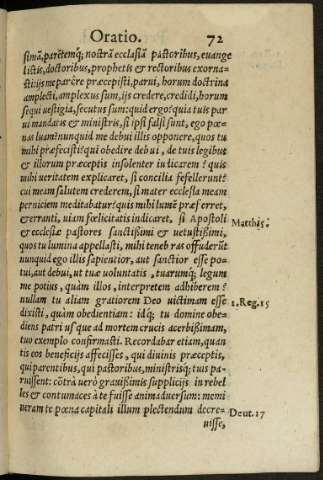 Oratio. 72
simā, parētemq́; nostrā ecclesiā pastoribus, euange
listis, doctoribus, prophetis & rectoribus exorna-
sti: ijs me parēre præcepisti, parui, horum doctrina
amplecti, amplexus sum, ijs credere, credidi, horum
sequi uestigia, secutus sum: quid ergo? quia tuis par
ui mandatis & ministris, si ipsi falsi sunt, ego pœ-
nas luam? nunquid me debui illis opponere, quos tu
mihi præfecisti? qui obedire debui, de tuis legibus
& illorum præceptis insolenter iudicarem? quis
mihi ueritatem explicaret, si concilia fefellerunt?
cui meam salutem crederem, si mater ecclesia meam
perniciem meditabatur? quis mihi lumē præferret,
& erranti, uiam fœlicitatis indicaret, si Apostoli
& ecclesiæ pastores sanctißimi & uetustißimi,
Matthi 5.
quos tu lumina appellasti, mihi tenebras offuderūt
nunquid ego illis sapientior, aut sanctior esse po-
tui, aut debui, ut tuæ uoluntatis, tuarumq́; legum
me potius, quàm illos, interpretem adhiberem?
nullam tu aliam gratiorem Deo uictimam esse
1. Reg. 15
dixisti, quàm obedientiam: idq́; tu domine obe-
diens patri usque ad mortem crucis acerbißimam,
tuo exemplo confirmasti. Recordabar etiam, quan
tis eos beneficijs affecisses, qui diuinis præceptis,
qui parentibus, qui pastoribus, ministrisq́; tuis pa-
ruissent: cōtrà uerò grauißimis supplicijs in rebel
les & contumaces à te fuisse animaduersum: memi
neram te pœna capitali illum plectendum decre-
Deut. 17
uisse,